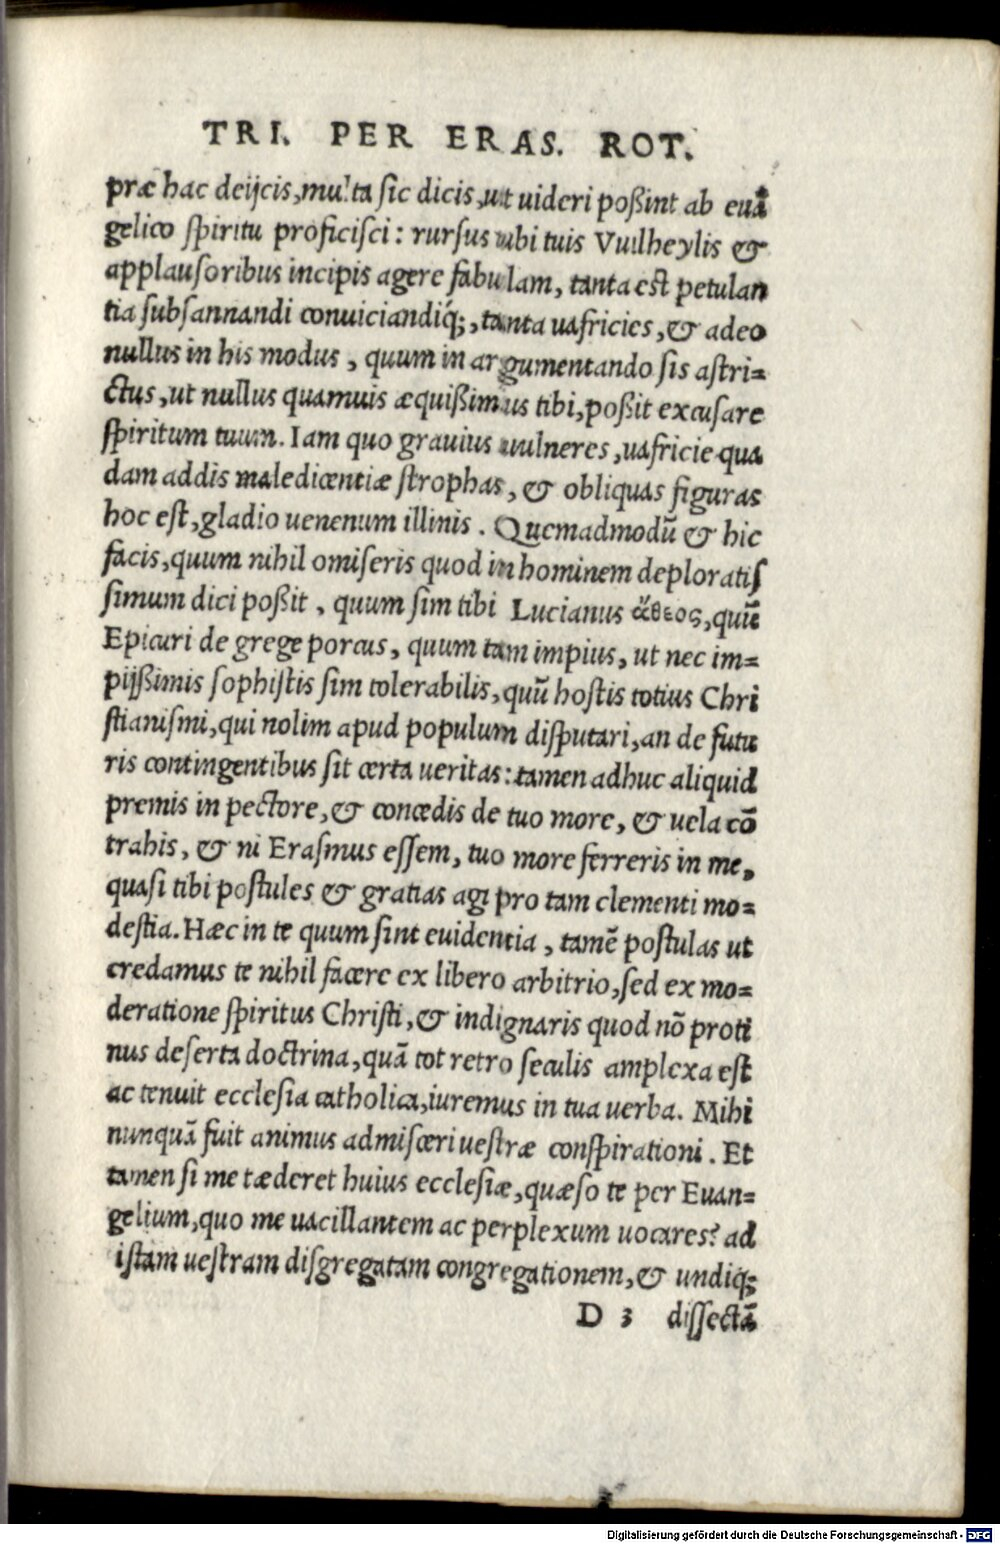 TRI. PER ERAS. ROT.
præ hac deijcis, multa sic dicis, ut uideri poßint ab euã
gelico spiritu proficisci: rursus ubi tuis Vuilheylis &
applausoribus incipis agere fabulam, tanta est petulan
tia subsannandi conuiciandiq́;, tanta uafricies, & adeo
nullus in his modus, quum in argumentando sis astri=
ctus, ut nullus quamuis æquißimus tibi, poßit excusare
spiritum tuum. Iam quo grauius uulneres, uafricie qua
dam addis maledicentiæ strophas, & obliquas figuras
hoc est, gladio uenenum illinis. Quemadmodũ & hic
facis, quum nihil omiseris quod in hominem deploratis
simum dici poßit, quum sim tibi Lucianus ἄθεος, quũ
Epicuri de grege porcus, quum tam impius, ut nec im=
pijßimis sophistis sim tolerabilis, quũ hostis totius Chri
stianismi, qui nolim apud populum disputari, an de futu
ris contingentibus sit certa ueritas: tamen adhuc aliquid
premis in pectore, & concedis de tuo more, & uela cõ
trahis, & ni Erasmus essem, tuo more ferreris in me,
quasi tibi postules & gratias agi pro tam clementi mo=
destia. Hæc in te quum sint euidentia, tamẽ postulas ut
credamus te nihil facere ex libero arbitrio, sed ex mo=
deratione spiritus Christi, & indignaris quod nõ proti
nus deserta doctrina, quã tot retro seculis amplexa est
ac tenuit ecclesia catholica, iuremus in tua uerba. Mihi
nunquã fuit animus admisceri uestræ conspirationi. Et
tamen si me tæderet huius ecclesiæ, quæso te per Euan=
gelium, quo me uacillantem ac perplexum uocares? ad
istam uestram disgregatam congregationem, & undiq;
D 3 dissectã
Digitalisierung gefördert durch die Deutsche Forschungsgemeinschaft - DFG